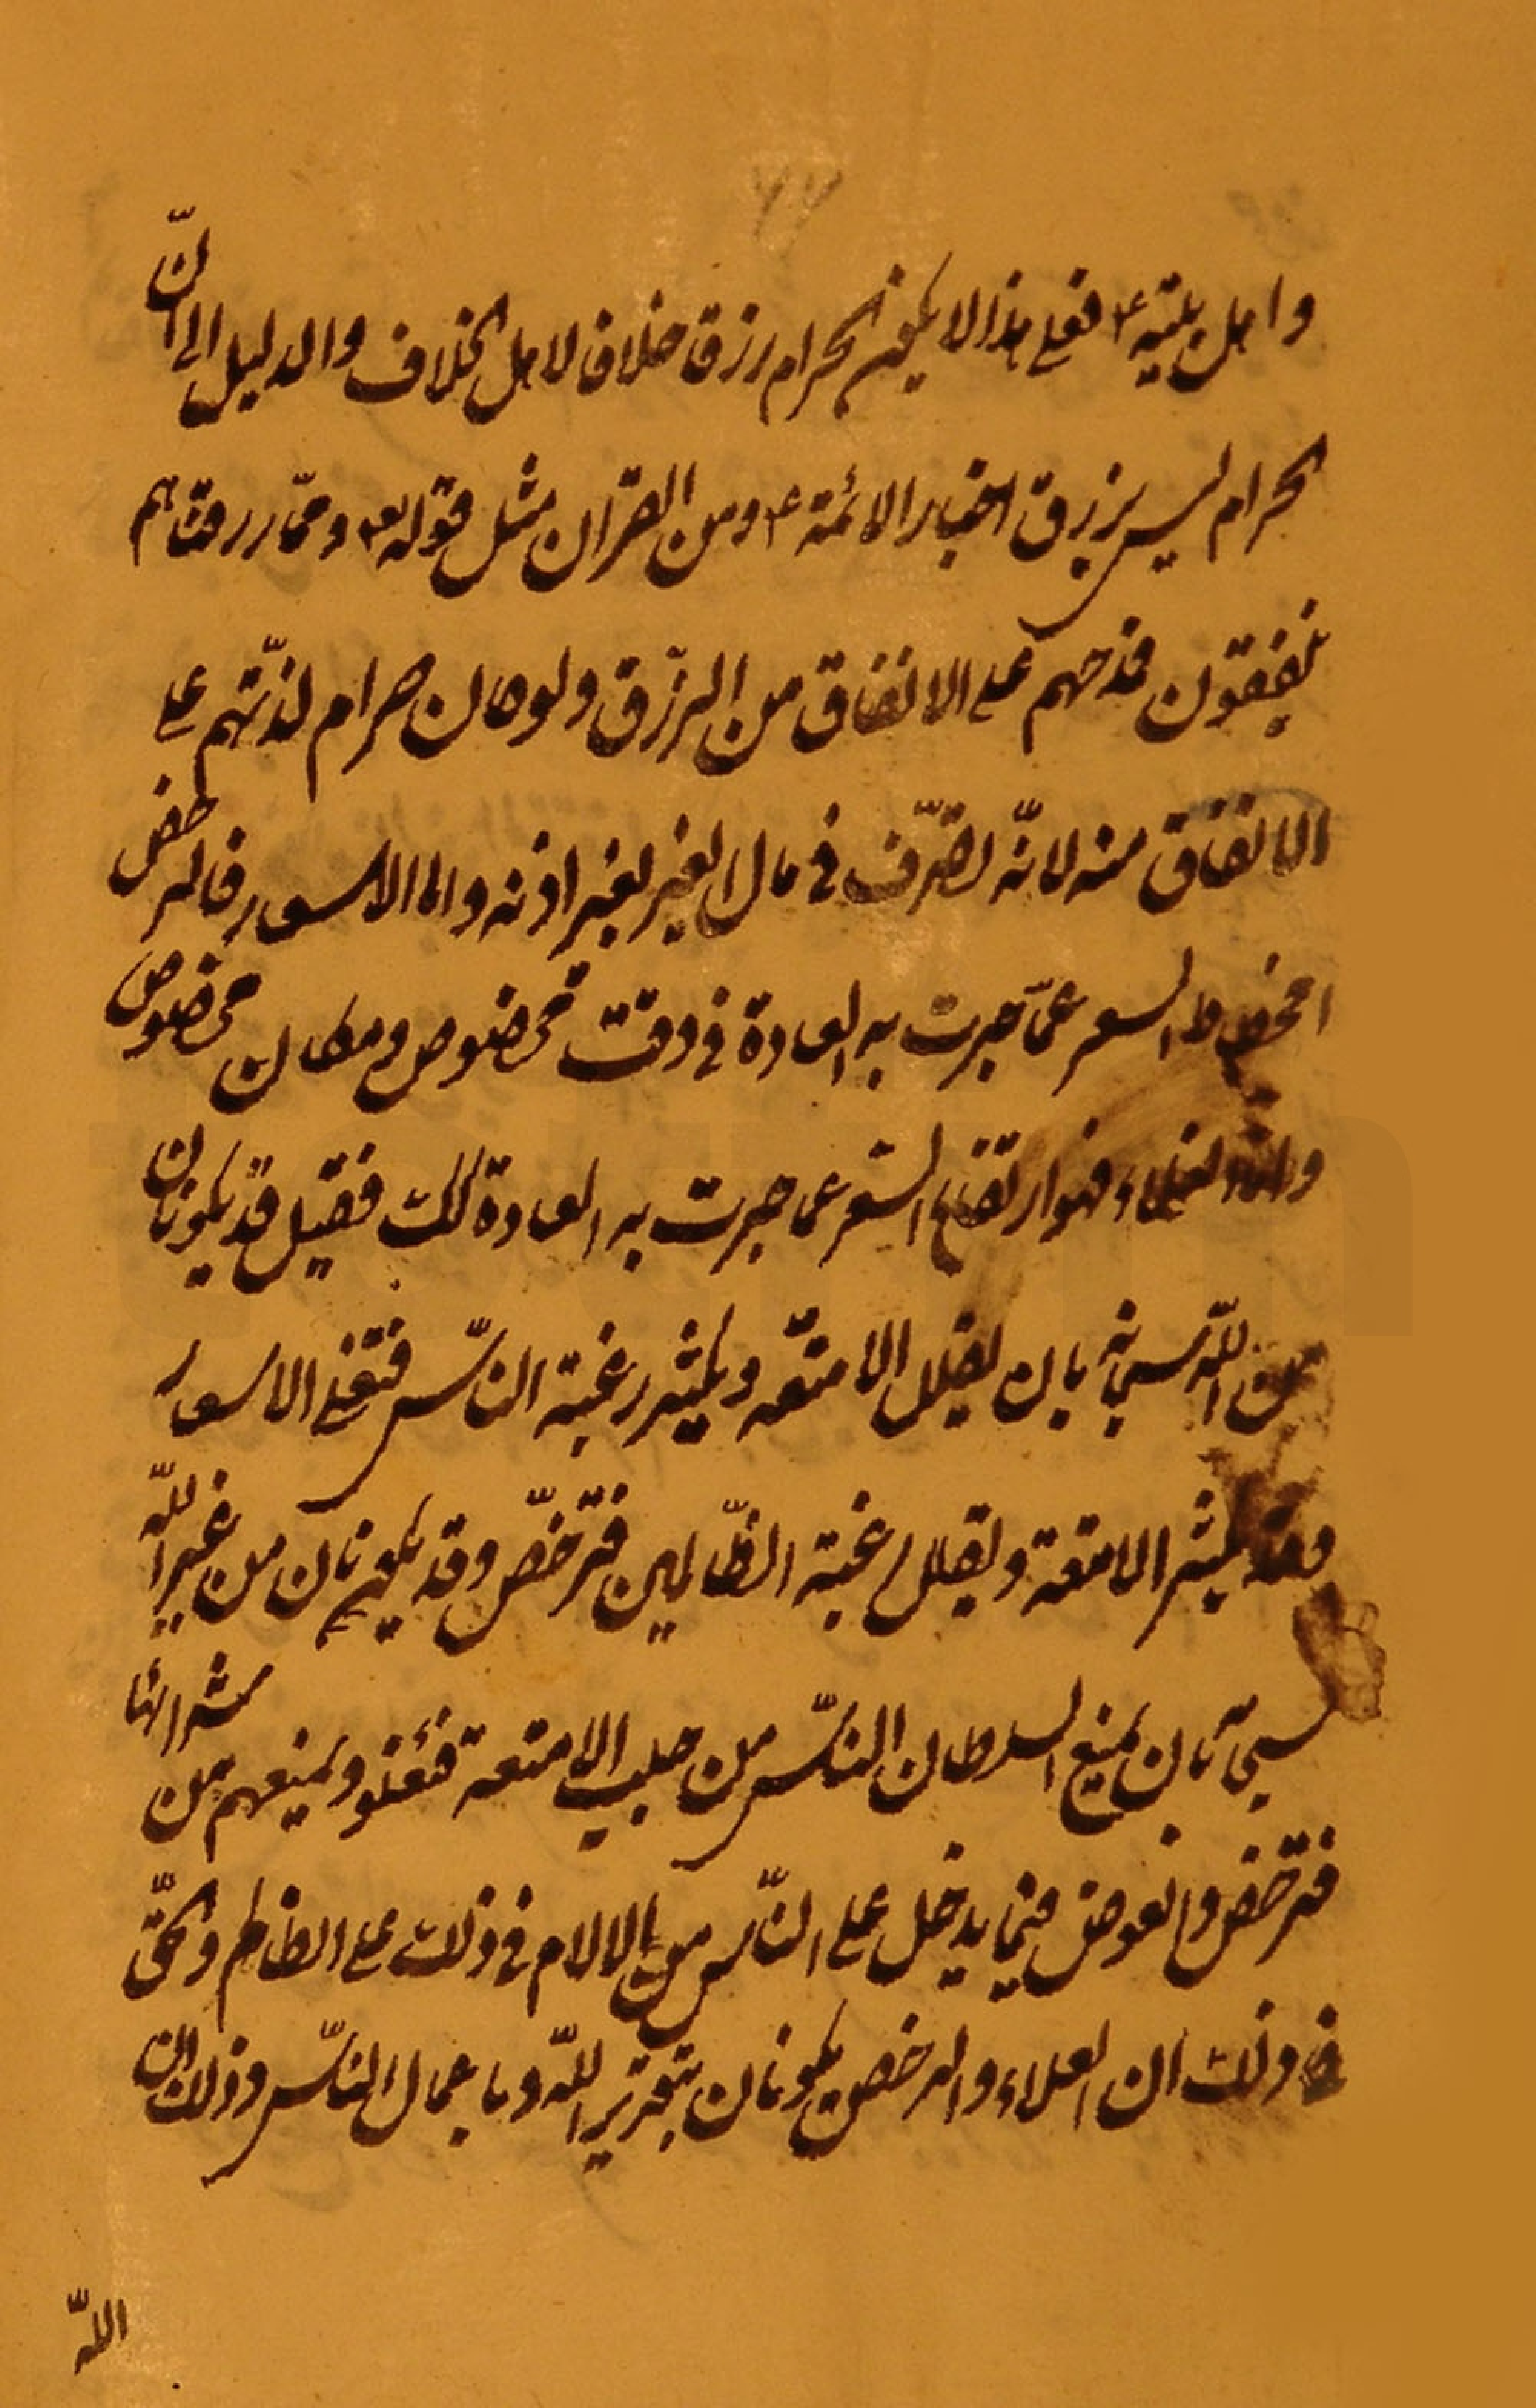 واهل بيته ع فعلى هذا لا يكون الحرام رزقا خلافا لاهل الخلاف والدليل الى انّ
الحرام ليس برزق اخبار الائمة ع ومن القران مثل قوله تع وممّا رزقناهم
ينفقون فمدحهم على الانفاق من الرزق ولو كان حرام لذمّهم على
الانفاق منه لانّه تصرّف في مال الغير بغير اذنه واما الاسعار فالرخص
انحطاط السعر عمّا جرت به العادة في وقت مخصوص ومكان مخصوص
واما الغلاء فهو ارتفاع السّعر عما جرت به العادة كك فقيل قد يكونان
من اللّه سبحانه بان يقلل الامتعه ويكثر رغبة النّاس فتغلى الاسعار
وقد يكثر الامتعة ويقلل رغبة الظّالمين فترخّص وقد يكونان من غير اللّه
سبحانه بان يمنع السلطان النّاس من جلب الامتعة فتغلو ويمنعهم من شرائها
فترخص والعوض فيما يدخل على النّاس من الالام في ذلك على الظالم والحقّ
في ذلك ان الغلاء والرخص يكونان بتقدير اللّه وباعمال النّاس وذلك ان
اللّه